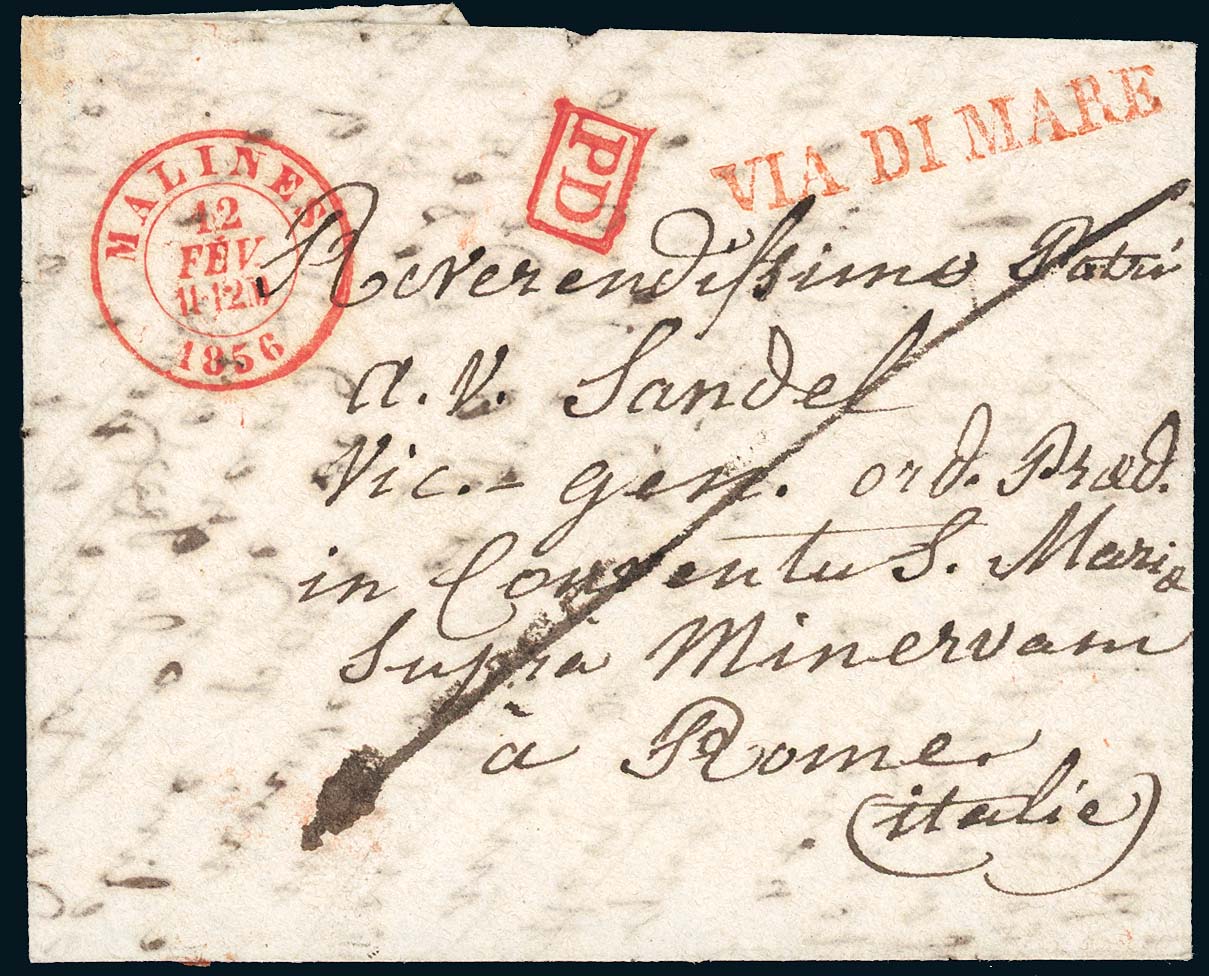 MALINES
12
FÉV.
11-12M
1856
PD
VIA DI MARE
Reverendissimo Patri
a. V. Sandel
Vic.- gen. ord. Præd.
in Conventu S. Mariæ
Supra Minervam
à Rome
(italie)